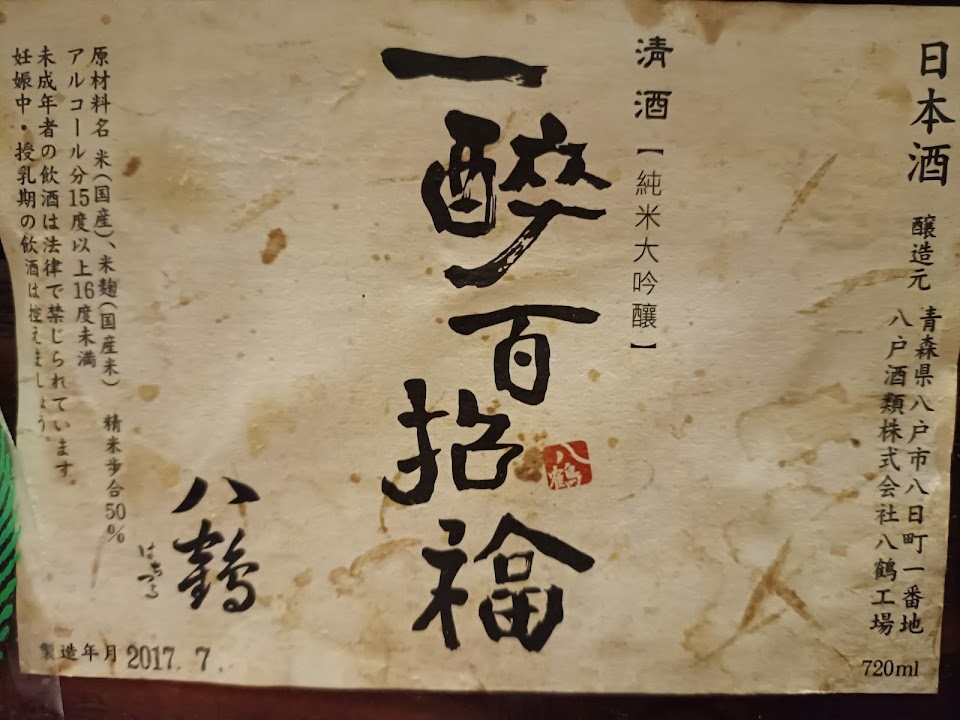 日本酒
醸造元
青森県八戸市八日町一番地
八戸酒類株式会社八鶴工場
720ml
清酒【純米大吟醸】
一醉百招福
八鶴
八鶴
はちつる
原材料名 米(国産)、米麹(国産米) 精米歩合50%
アルコール分15度以上16度未満
未成年者の飲酒は法律で禁じられています。
妊娠中・授乳期の飲酒は控えましょう。
製造年月 2017. 7.